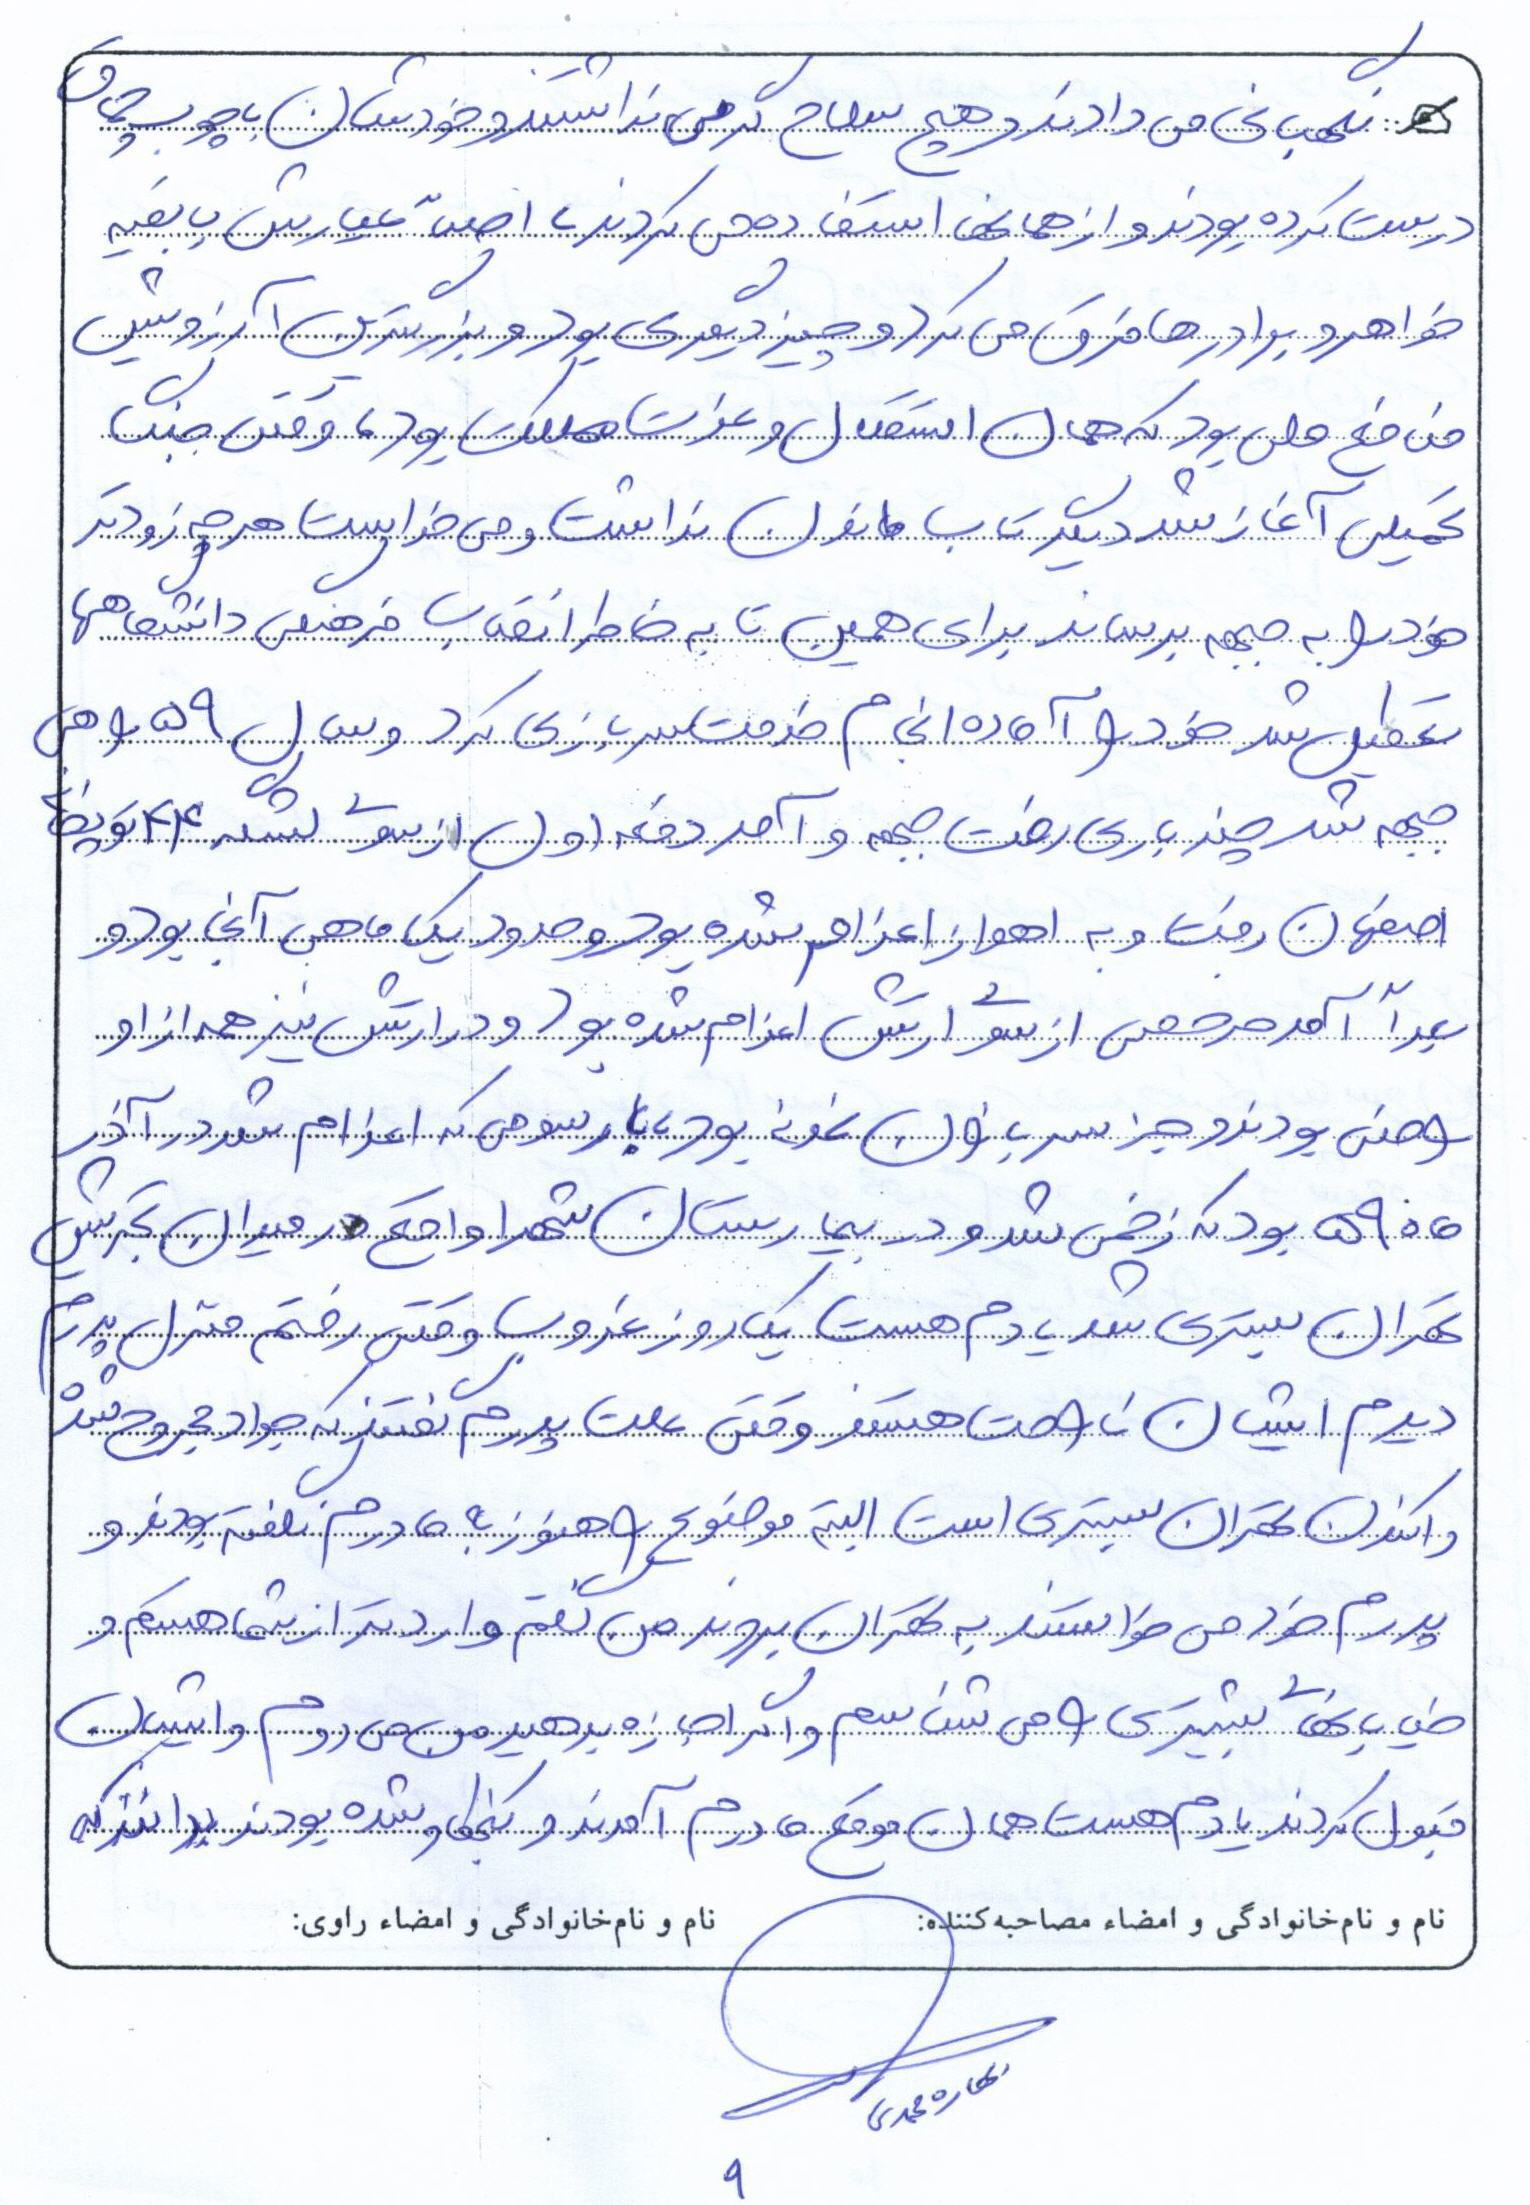 نگهبانی می دادند و هیچ سلاح گرمی نداشتند و خودشان با چوب چماق
درست کرده بودند و از همانها استفاده می کردند، اصلاً عیارش با بقیه
خواهر و برادرها فرق می کرد و چیز دیگری بود و بزرگترین آرزویش
منافع ملی بود که همان استقلال و عزت مملکت بود، وقتی جنگ
تحمیلی آغاز شد دیگر تاب ماندن نداشت و می خواست هر چه زودتر
خود را به جبهه برساند برای همین تا به خاطر انقلاب فرهنگی دانشگاهها
تعطیل شد خود را آماده انجام خدمت سربازی کرد و سال ۵۹ راهی
جبهه شد چند باری رفت جبهه و آمد دفعه اول از سوی لشگر ۴۴ توپخانه
اصفهان رفت و به اهواز اعزام شده بود و حدود یک ماهی آنجا بود و
بعداً آمد مرخصی از سوی ارتش اعزام شده بود و در ارتش نیز همه از او
راضی بودند و جز سربازان نمونه بود، بار سومی که اعزام شد در آذر
ماه ۵۹ بود که زخمی شد و در بیمارستان شهدا واقع در میدان تجریش
تهران بستری شد یادم هست یک روز غروب وقتی رفتم منزل پدرم
دیدم ایشان ناراحت هستند وقتی علت پدرم گفتند که جواد مجروح شده
و اکنون تهران بستری است البته موضوع را هنوز به مادرم نگفته بودند و
پدرم خود می خواستند به تهران بروند من گفتم واردتر از شما هستم و
خیابانهای بیشتری را می شناسم و اگر اجازه بدهید من می روم و ایشان
قبول کردند یادم هست همان موقع مادرم آمدند و کنجکاو شده بودند بدانند که
نام و نام‌خانوادگی و امضاء مصاحبه‌کننده:
نام و نام‌خانوادگی و امضاء راوی:
بهاره محمدی
۹